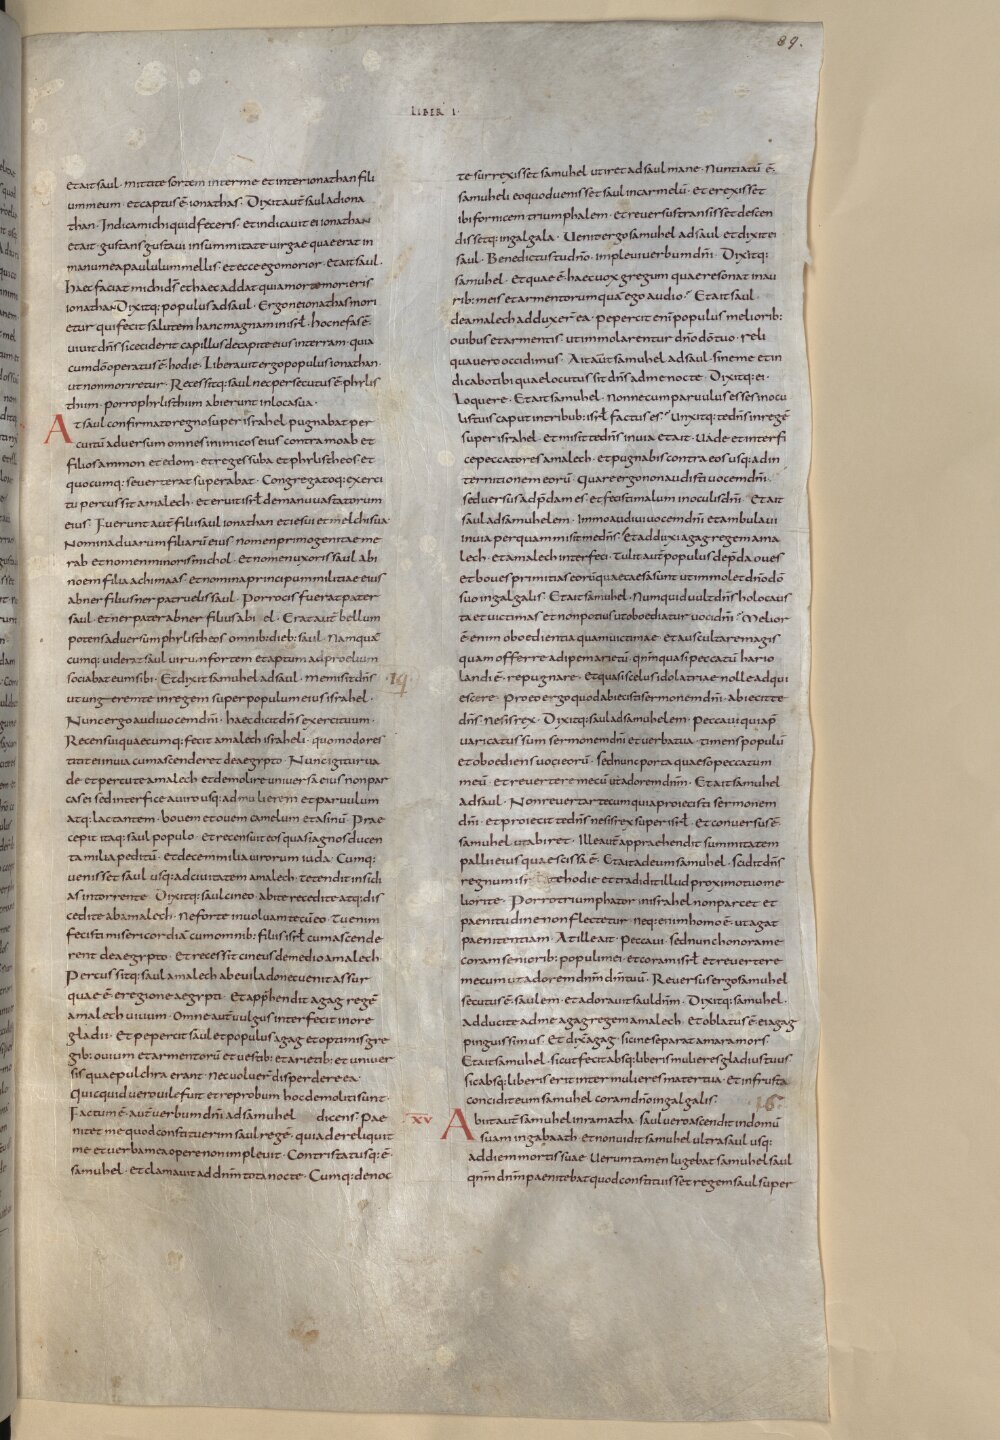 89.
LIBER I.
et ait saul. mittite sortem inter me et inter ionathan fili
um meum. et captus ē ionathas. Dixit aut̄ saul ad iona
than. Indica mihi quid feceris. et indicavit ei ionathan
et ait. gustans gustavi in summitate virgae quae erat in
manu mea paululum mellis. et ecce ego morior. et ait saul.
haec faciat mihi d̄s et haec addat quia morte morieris
ionathan Dixitq; populus ad saul. Ergone ionathas mori
etur qui fecit salutem hanc magnam in isrł. hoc nefas ē.
vivit dn̄s si ceciderit capillus de capite eius in terram. quia
cum dō operatus ē hodie. Liberavit ergo populus ionathan.
ut non moriretur. Recessitq; saul nec persecutus ē phylis
thum. porro phylisthum abierunt in loca sua.
At saul confirmato regno super israhel pugnabat per
cuitū adversum omnes inimicos eius contra moab et
filios ammon et edom. et reges suba et phylistheos. et
quocumq; se verterat superabat. Congregatoq; exerci
tu percussit amalech. et eruit isrł de manu vastatorum
eius. Fuerunt aut̄ filii saul ionathan et iesui et melchisua.
Nomina duarum filiarū eius nomen primogenitae me
rab et nomen minoris michol. et nomen uxoris saul abi
noem filia achimaas. et nomina principum militiae eius
abner filius ner patruelis saul. Porro cis fuerat pater
saul. et ner pater abner filius abi el. Erat aut̄ bellum
potens adversum phylistheos omnib; dieb; saul. Nam quē
cumq; viderat saul virum fortem et aptum ad proelium
sociabat eum sibi. Et dixit samuhel ad saul. me misit dn̄s .19.
ut ungerem te in regem super populum eius israhel.
Nunc ergo audi vocem dn̄i. haec dicit dn̄s exercituum.
Recensui quaecumq; fecit amalech israheli. quomodo res
titit ei in via cum ascenderet de aegypto. Nunc igitur va
de et percute amalech et demolire universa eius non par
cas ei sed interfice a viro usq; ad mulierem et parvulum
atq; lactantem. bovem et ovem camelum et asinū. Prae
cepit itaq; saul populo. et recensuit eos quasi agnos ducen
ta milia peditū. et decem milia virorum iuda. Cumq;
venisset saul usq; ad civitatem amalech. tetendit insidi
as in torrente. Dixitq; saul cineo abite recedite atq; dis
cedite ab amalech. ne forte involvam te cū eo. Tu enim
fecisti misericordiā cum omnib; filiis isrł cum ascende
rent de aegypto. Et recessit cineus de medio amalech.
Percussitq; saul amalech ab evila donec venit assur
quae ē e regione aegypti. Et app̄hendit agag regē
amalech vivum. Omne aut̄ vulgus interfecit in ore
gladii. Et pepercit saul et populus agag et optimis gre
gib; ovium et armentorū et vestib; et arietib; et univer
sis quae pulchra erant. nec voluer̄ disperdere ea.
Quicquid vero vile fuit et reprobum hoc demoliti sunt.
Factum ē aut̄ verbum dn̄i ad samuhel dicens. Pae
nitet me quod constituerim saul regē. quia dereliquit
me et verba mea opere non implevit. Contristatusq; ē.
samuhel. et clamavit ad dn̄m tota nocte. Cumq; de noc
te surrexisset samuhel ut iret ad saul mane. Nuntiatū ē.
samuheli eo quod venisset saul in carmelū. et erexisset
ibi fornicem triumphalem. et reversus transisset descen
dissetq; in galgala. Venit ergo samuhel ad saul et dixit ei
saul. Benedictus tu dn̄o. implevi verbum dn̄i. Dixitq;
samuhel. et quae ē haec vox gregum quae resonat in au
rib; meis et armentorum quā ego audio. Et ait saul.
de amalech adduxer̄ ea. pepercit enī populus meliorib;
ovibus et armentis ut immolarentur dn̄o dō tuo. reli
qua vero occidimus. Ait aut̄ samuhel ad saul. sine me et in
dicabo tibi quae locutus sit dn̄s ad me nocte. Dixitq; ei.
Loquere. Et ait samuhel. Nonne cum parvulus esses in ocu
lis tuis caput in tribub; isrł factus es. Unxitq; te dn̄s in regē
super israhel. et misit te dn̄s in via et ait. Vade et interfi
ce peccatores amalech. et pugnabis contra eos usq; ad in
ternitionem eorū. Quare ergo non audisti vocem dn̄i.
sed versus ad p̄dam es. et fecisti malum in oculis dn̄i. Et ait
saul ad samuhelem. Immo audivi vocem dn̄i et ambulavi
in via per quam misit me dn̄s. Et adduxi agag regem ama
lech. et amalech interfeci. Tulit aut̄ populus de p̄da oves
et boves primitias eorū quae caesa sunt ut immolet dn̄o dō
suo in galgalis. Et ait samuhel. Numquid vult dn̄s holocaus
ta et victimas et non potius ut oboediatur voci dn̄i. Melior
ē enim oboedientia quam victimae. et auscultare magis
quam offerre adipem arietū. qn̄m quasi peccatū hario
landi ē. repugnare. Et quasi scelus idolatriae nolle adqui
escere. Pro eo ergo quod abiecisti sermonem dn̄i. abiecit te
dn̄s ne sis rex. Dixitq; saul ad samuhelem. Peccavi quia p̄
varicatus sum sermonem dn̄i et verba tua. timens populū
et oboediens voci eorū. sed nunc porta quaeso peccatum
meū. et revertere mecū ut adorem dn̄m. Et ait samuhel
ad saul. Non revertar tecum quia proiecisti sermonem
dn̄i. et proiecit te dn̄s ne sis rex super isrł. Et conversus ē
samuhel ut abiret. Ille aut̄ appraehendit summitatem
pallii eius quae scissa ē. Et ait ad eum samuhel. scidit dn̄s
regnum isr te hodie et tradidit illud proximo tuo me
liori te. Porro triumphator in israhel non parcet et
paenitudine non flectetur. neq; enim homo ē. ut agat
paenitentiam. At ille ait. Peccavi. sed nunc honora me
coram seniorib; populi mei. et coram isrł et revertere
mecum ut adorem dn̄m dm̄ tuū. Reversus ergo samuhel
secutus ē saulem. et adoravit saul dn̄m. Dixitq; samuhel.
adducite ad me agag regem amalech. Et oblatus ē. ei agag
pinguissimus. Et dix̄ agag. sicine separat amara mors.
Et ait samuhel. sicut fecit absq; liberis mulieres gladius tuus
sic absq; liberis erit inter mulieres mater tua. et in frusta
concidit eum samuhel coram dn̄o in galgalis. .16.
XV Abiit aut̄ samuhel in ramatha. saul vero ascendit in domū
suam in gabaath. et non vidit samuhel ultra saul usq;
ad diem mortis suae. verum tamen lugebat samuhel saul
qn̄m dn̄m paenitebat quod constituisset regem saul super